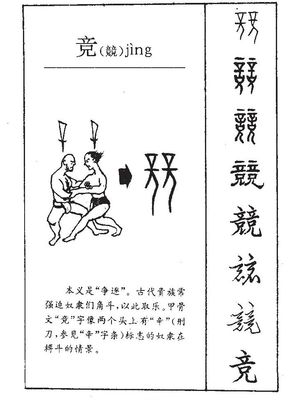 竞(競)jìng
本义是“争逐”。古代贵族常
强迫奴隶们角斗，以此取乐。甲骨
文“竞”字像两个头上有“辛”(刑
刀，参见“辛”字条)标志的奴隶在
搏斗的情景。
競
競
競
竞